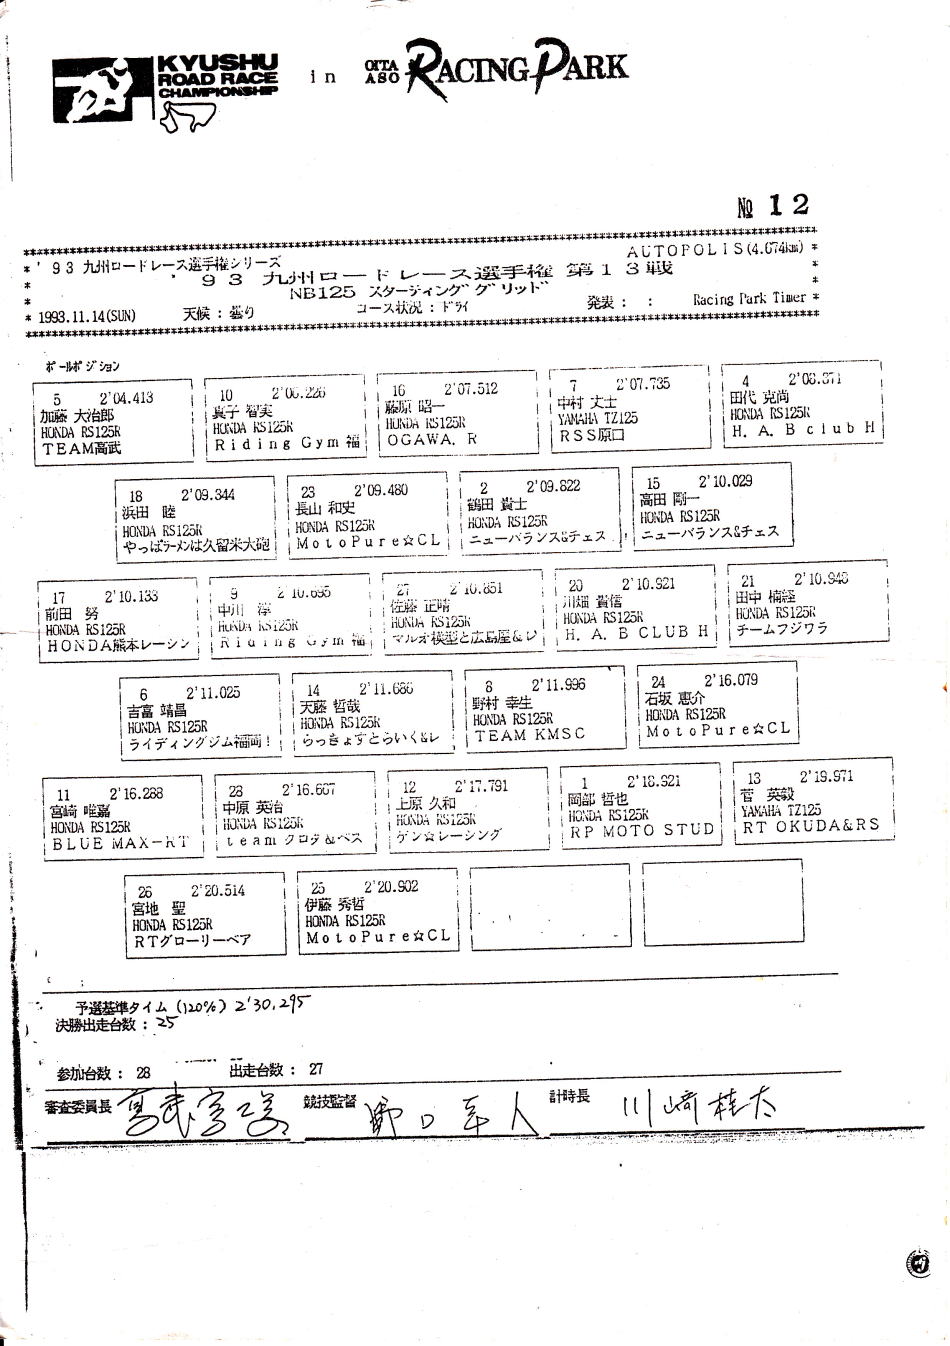 KYUSHU
ROAD RACE
CHAMPIONSHIP
in
OITA
ASO
RACING PARK
№ 12
AUTOPOLIS(4.674km)
'93 九州ロードレース選手権シリーズ
'93 九州ロードレース選手権 第13戦
NB125 スターティング グリッド
1993.11.14(SUN) 天候：曇り コース状況：ドライ 発表： ： Racing Park Timer
ポールポジション
5 2'04.413
加藤 大治郎
HONDA RS125R
TEAM高武
10 2'06.226
眞子 智実
HONDA RS125R
Riding Gym 福
16 2'07.512
藤原 昭一
HONDA RS125R
OGAWA. R
7 2'07.735
中村 丈士
YAMAHA TZ125
RSS原口
4 2'08.871
田代 克尚
HONDA RS125R
H. A. B club H
18 2'09.344
浜田 睦
HONDA RS125R
やっぱラーメンは久留米大砲
23 2'09.480
長山 和史
HONDA RS125R
MotoPure☆CL
2 2'09.822
鶴田 貴士
HONDA RS125R
ニューバランス&チェス
15 2'10.029
高田 剛一
HONDA RS125R
ニューバランス&チェス
17 2'10.133
前田 努
HONDA RS125R
HONDA熊本レーシン
9 2'10.695
中川 淳
HONDA RS125R
Riding Gym 福
27 2'10.851
佐藤 正晴
HONDA RS125R
マルオ模型と広島屋&レ
20 2'10.921
川畑 貴信
HONDA RS125R
H. A. B CLUB H
21 2'10.948
田中 楠経
HONDA RS125R
チームフジワラ
6 2'11.025
吉富 靖昌
HONDA RS125R
ライディングジム福岡！
14 2'11.686
天藤 哲哉
HONDA RS125R
らっきょすとらいく&レ
8 2'11.996
野村 幸生
HONDA RS125R
TEAM KMSC
24 2'16.079
石坂 恵介
HONDA RS125R
MotoPure☆CL
11 2'16.288
宮崎 唯嘉
HONDA RS125R
BLUE MAX-RT
28 2'16.667
中原 英治
HONDA RS125R
team クロテ&ベス
12 2'17.791
上原 久和
HONDA RS125R
ゲン☆レーシング
1 2'18.921
岡部 哲也
HONDA RS125R
RP MOTO STUD
13 2'19.971
菅 英毅
YAMAHA TZ125
RT OKUDA&RS
26 2'20.514
宮地 聖
HONDA RS125R
RTグローリーベア
25 2'20.902
伊藤 秀哲
HONDA RS125R
MotoPure☆CL
予選基準タイム (120%) 2'30.295
決勝出走台数：25
参加台数： 28 出走台数： 27
審査委員長 高武富久美 競技監督 野口幸人 計時長 川崎桂太